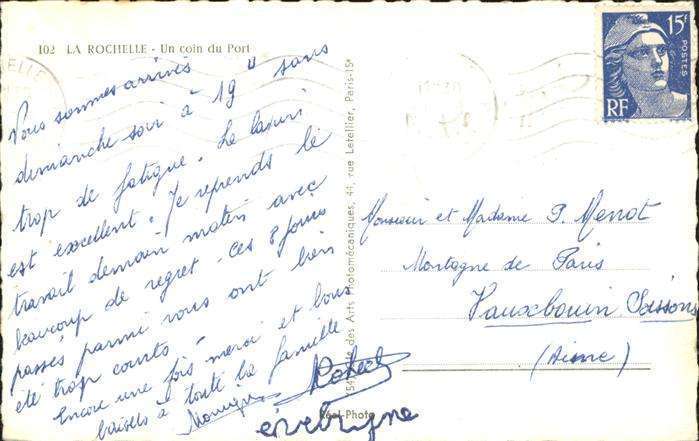 102 LA ROCHELLE - Un coin du Port
Nous sommes arrivés
dimanche soir à 19 H sans
trop de fatigue. Le
est excellent. Je reprends le
travail demain matin avec
beaucoup de regret. Ces 8 jours
passés parmi vous ont bien
été trop courts.
Encore une fois merci et bons
baisers à toute la famille
Robert
Réal-Photo
des Arts Photomécaniques, 44, rue Letellier, Paris-15e
15F
POSTES
RF
Monsieur et Madame P. Merrot
Montagne de Paris
Vauxbouin Soissons
(Aisne)